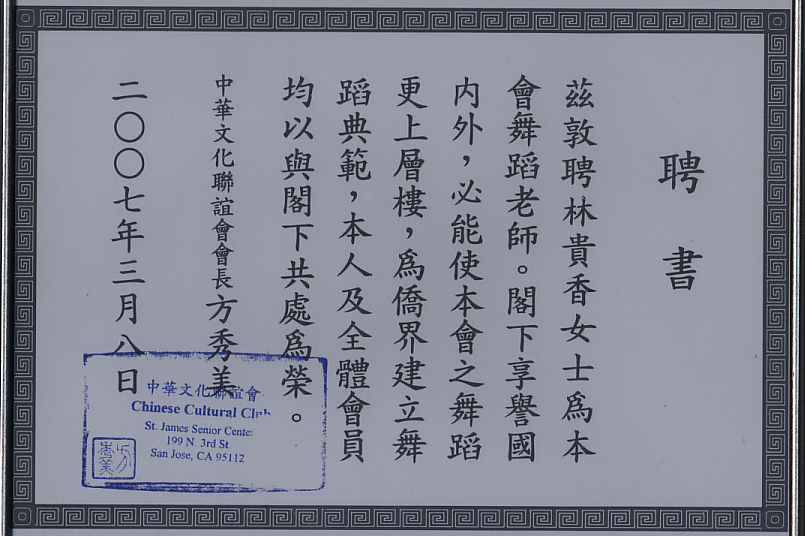 聘書
茲敦聘林貴香女士為本
會舞蹈老師。閣下享譽國
內外，必能使本會之舞蹈
更上層樓，為僑界建立舞
蹈典範，本人及全體會員
均以與閣下共處為榮。
中華文化聯誼會會長方秀美
二〇〇七年三月八日
中華文化聯誼會
Chinese Cultural Club
St. James Senior Center
199 N 3rd St.
San Jose, CA 95112
方秀美